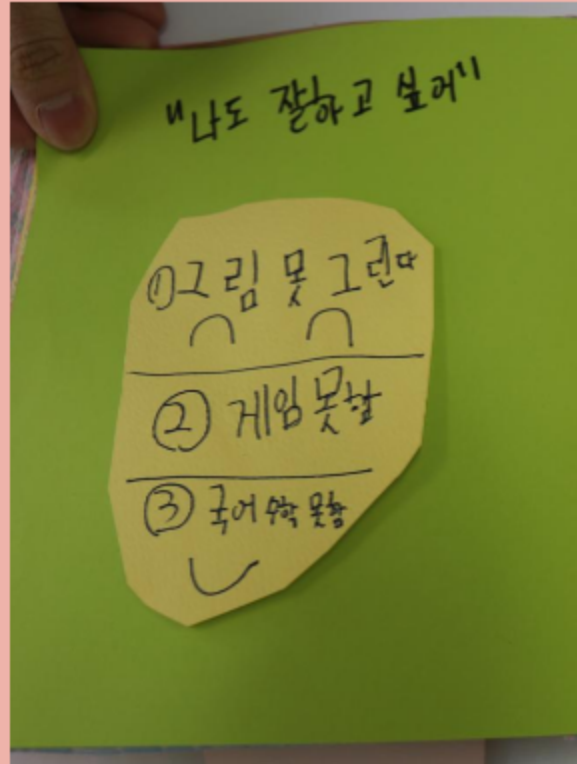 "나도 잘하고 싶어"
①그림 못 그린다
② 게임 못함
③ 국어 수학 못함